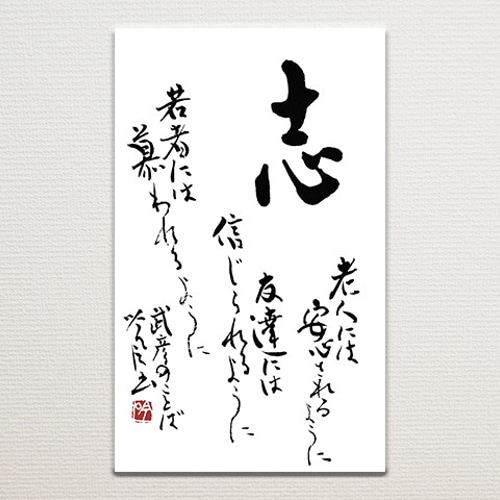 志
老人には
安心されるように
友達には
信じられるように
若者には
慕われるように
武彦のことば